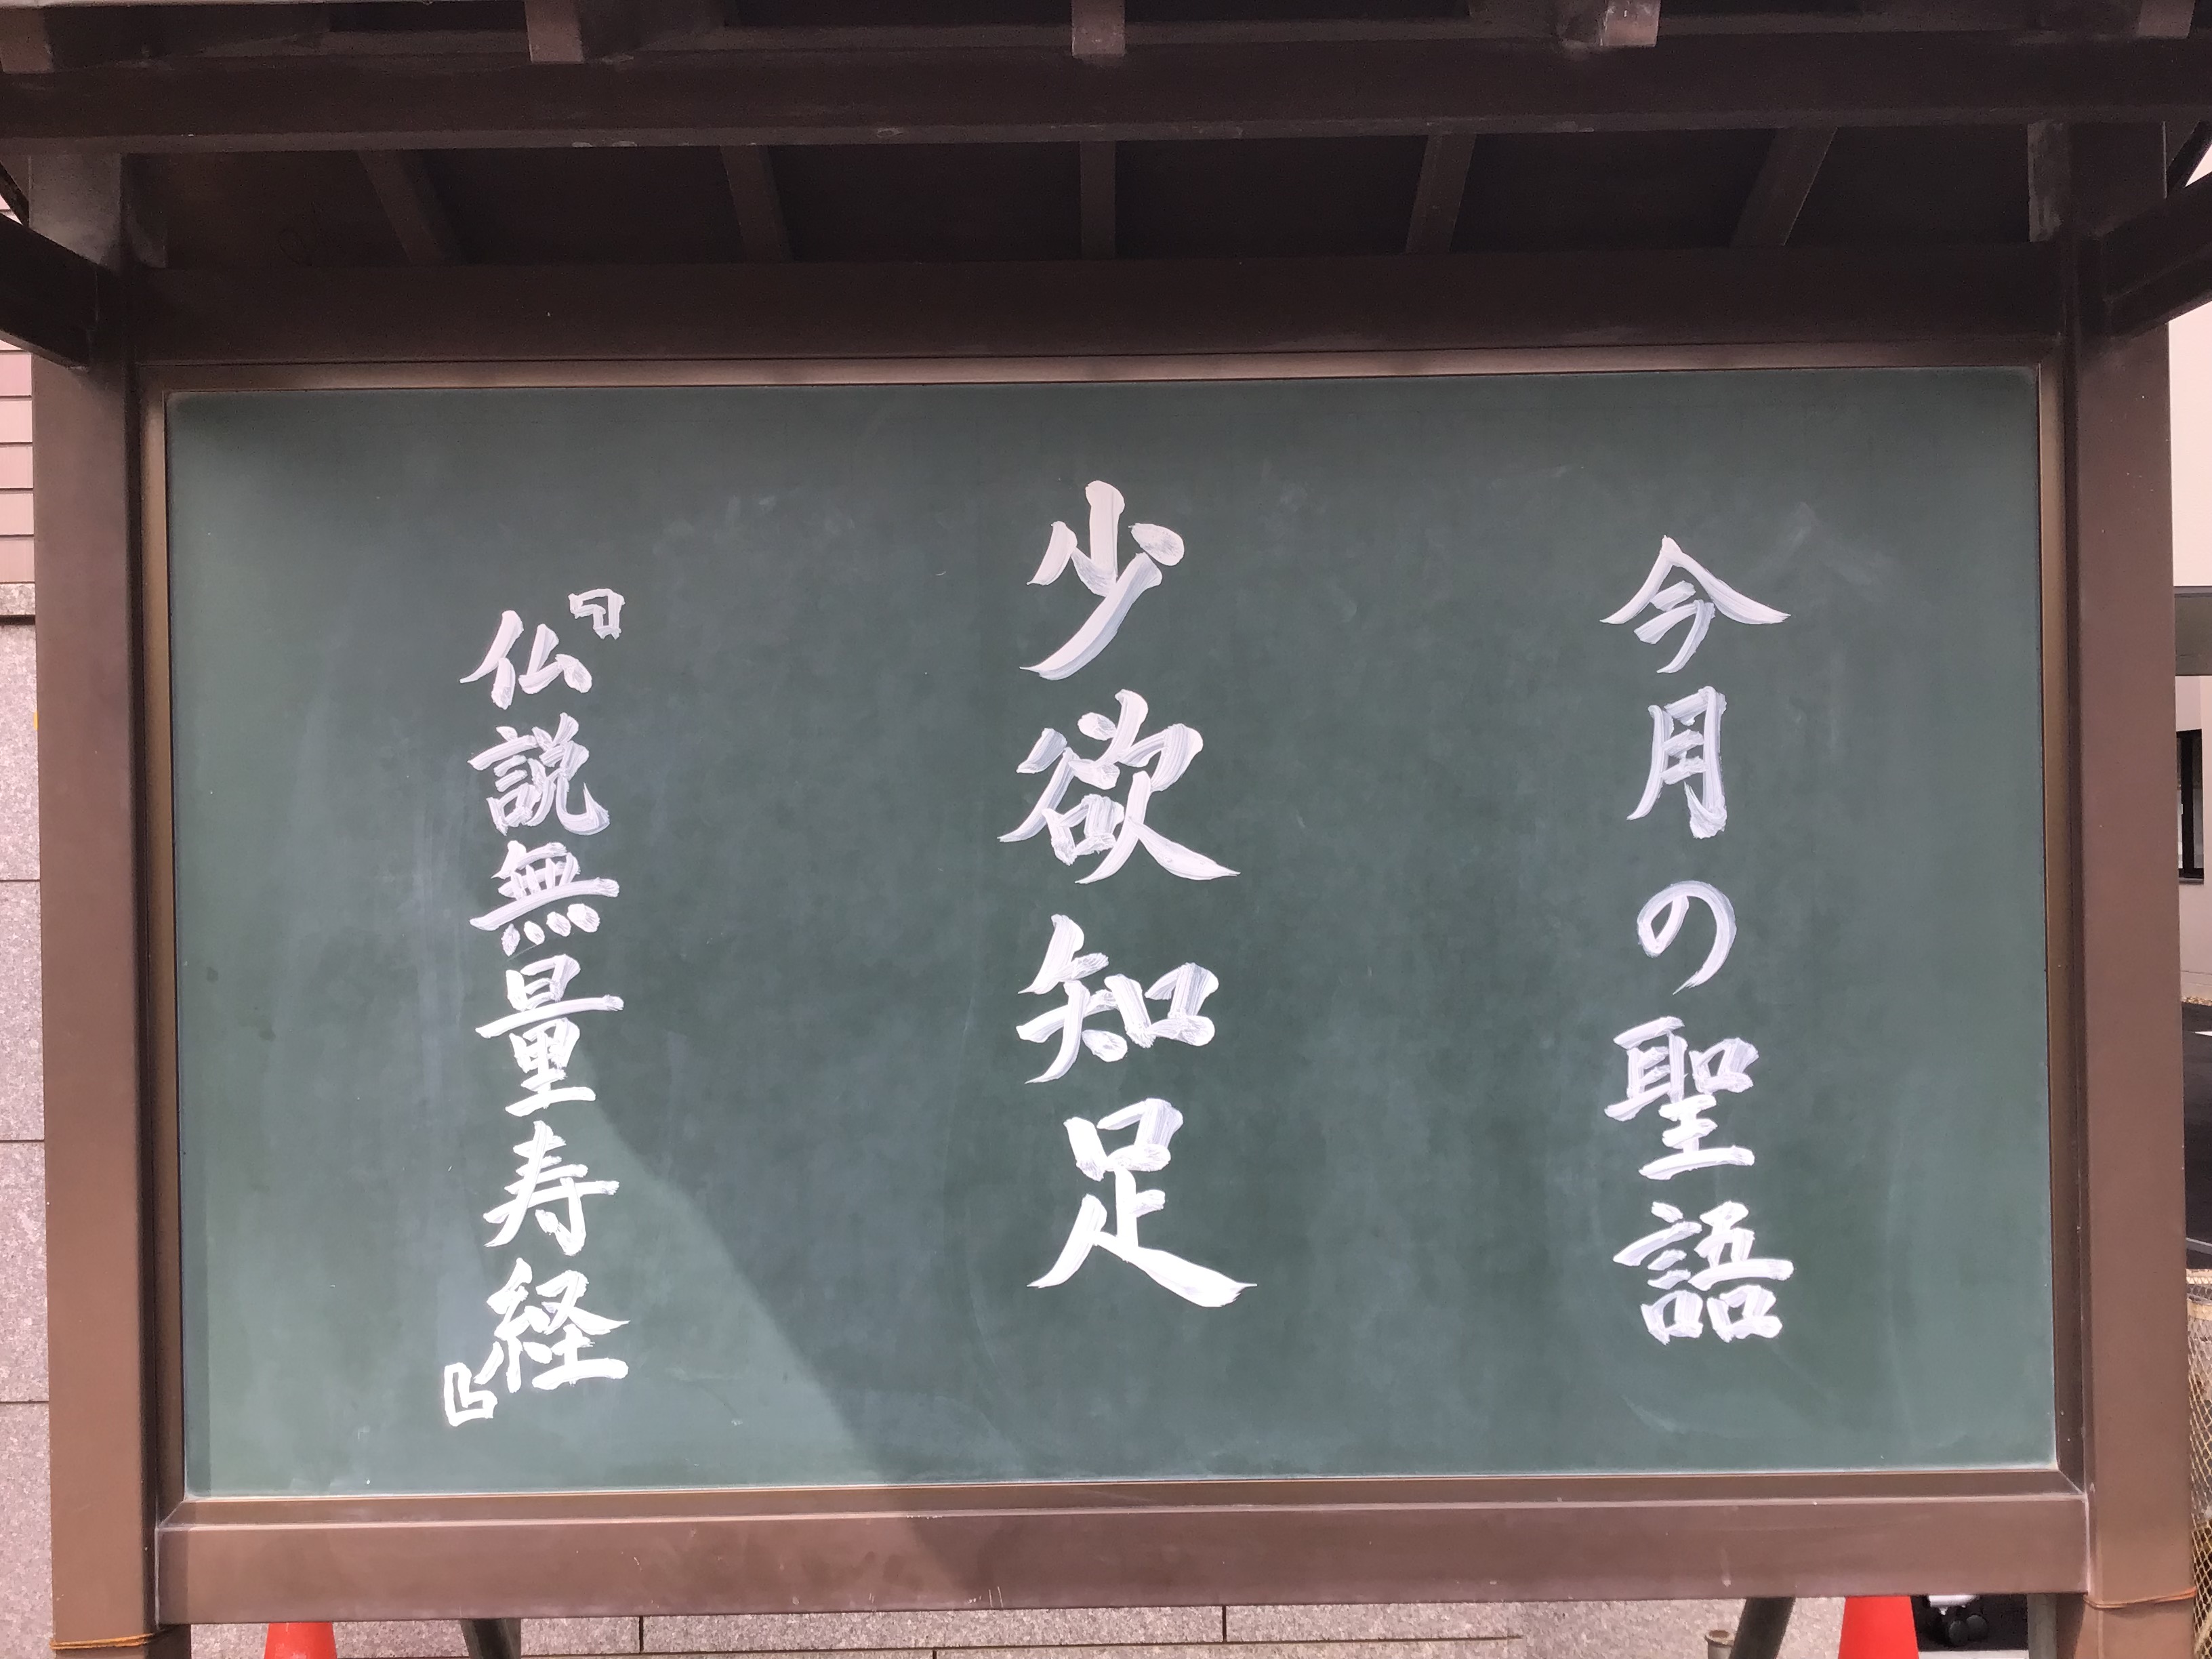 今月の聖語
少欲知足
『仏説無量寿経』